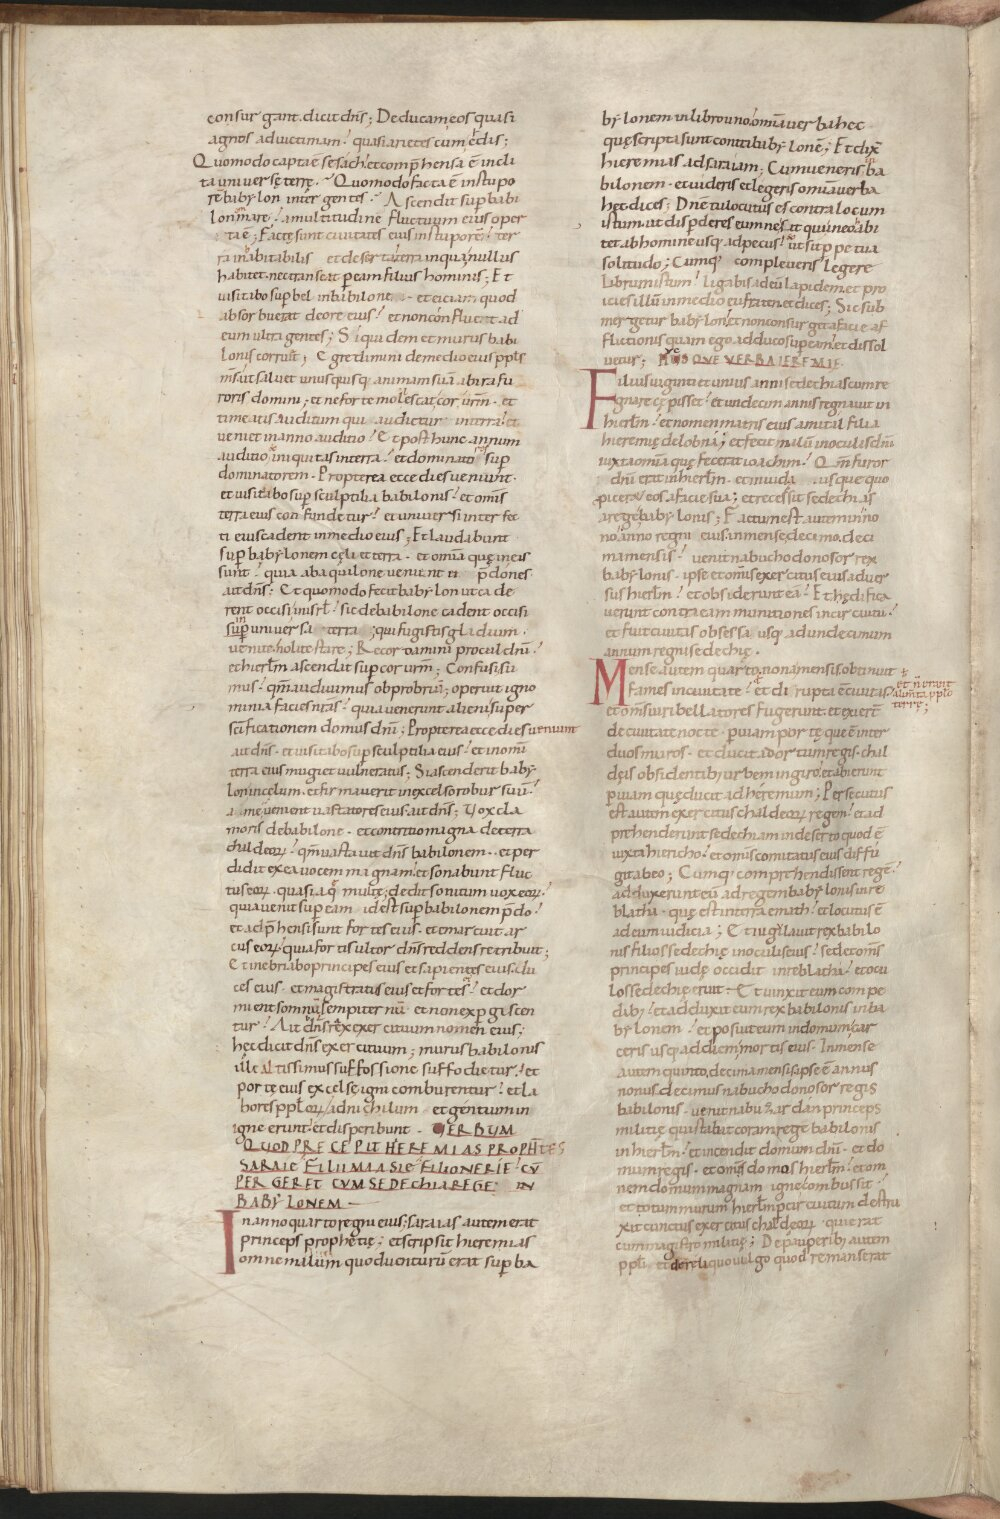 consurgant. dicit dñs; Deducam eos quasi
agnos ad victimam? quasi arietes cum edis;
Quomodo capta ē sesach? et comp̄hensa ē incli
ta universę terrę. Quomodo facta ē in stupo
rē babylon inter gentes? Ascendit sup babi
lonē mare? a multitudine fluctuum eius oper
ta ē; Factę sunt civitates eius in stuporē? ter
ra inhabitabilis et deserta terra in qua nullus
habitet. nec transeat p eam filius hominis; Et
visitabo sup bel in babilone et eiciam quod
absorbuerat de ore eius? et non confluent ad
eum ultra gentes; Siquidem et murus babi
lonis corruit; Egredimini de medio eius ppls
ms̄ ut salvet unusquisq; animam suā ab ira fu
roris domini; et ne forte molescat cor urm̄. et
timeatis auditum qui audietur in terra? et
veniet in anno auditio? Et post hunc annum
auditio? iniquitas in terra? et dominator sup
dominatorem. Propterea ecce dies veniunt.
et visitabo sup sculptilia babilonis? et omīs
terra eius confundetur? et universi interfec
ti eius cadent in medio eius; Et laudabunt
sup babylonem cęli et terra. et omīa quę in eis
sunt? quia ab aquilone venient ei p̄dones.
ait dñs; Et quomodo fecit babylon ut cade
rent occisi in isrl? sic de babilone cadent occisi
in universa terra; qui fugistis gladium.
venite nolite stare; Recordamini procul dñi?
et hierlm ascendat sup cor urm̄; Confusi su
mus? qm̄ audivimus obprobriū; operuit igno
minia facies nr̄as? quia venerunt alieni super
sc̄ificationem domus dñi; Propterea ecce dies veniunt
ait dñs. et visitabo sup sculptilia eius? et in omi
terra eius mugiet vulneratus; Si ascenderit baby
lon in celum. et firmaverit in excelso robur suū?
a me venient vastatores eius. ait dñs; Vox cla
moris de babilone. et contritio magna de terra
chaldeorum? qm̄ vastavit dñs babilonem. et per
didit ex ea vocem magnam? et sonabunt fluc
tus eorum. quasi aquę multę; dedit sonitum vox eorum?
quia venit sup eam id est sup babilonem p̄do?
et adp̄hensi sunt fortes eius. et emarcuit ar
cus eorum? quia fortis ultor dñs reddens retribuit;
Et inebriabo principes eius et sapientes eius. du
ces eius. et magistratus eius et fortes? et dor
mient somnū sempiternū. et non expgiscen
tur? Ait dñs rex exercituum nomen eius;
hęc dicit dñs exercituum; murus babilonis
ille altissimus suffossione suffodietur? et
portę eius excelsę igni comburentur? et la
bores pplorum ad nichilum et gentium in
igne erunt? et disperibunt. VERBUM
QUOD PRECEPIT HEREMIAS PROPHETES
SARAIE FILII MAASIE FILIO NERIE CŪ
PERGERET CUM SEDECHIA REGE IN
BABYLONEM
In anno quarto regni eius; saraias autem erat
princeps prophetię; et scripsit hieremias
omne malum quod venturū erat sup ba
bylonem in libro uno? omīa verba hec
quę scripta sunt contra babylonē; Et dix̄
hieremias ad saraiam; Cum veneris in ba
bilonem. et videris et legeris omīa verba
hęc dices; Dnē tu locutus es contra locum
istum ut disperderes eum ne sit qui in eo habi
tet ab homine usq; ad pecus? ut sit perpetua
solitudo; Cumq; compleveris legere
librum istum? ligabis ad eū lapidem. et pro
icies illū in medio eufraten. et dices; Sic sub
mergetur babylon. et non consurget a facie af
flictionis quam ego adduco sup eam? et dissol
vetur; HUCUSQUE VERBA IEREMIE
Filius viginti et unius anni sedechias cum re
gnare cępisset? et undecim annis regnavit in
hierlm? et nomen matris eius amital filia
hieremię de lobna; et fecit malū in oculis dñi
iuxta omīa quę fecerat ioachim? Qm̄ furor
dñi erat in hierlm. et in iuda usque quo
piceret eos a facie sua; et recessit sedechias
a rege babylonis; Factum est autem in no
no anno regni eius. in mense decimo. deci
ma mensis? venit nabuchodonosor rex
babylonis. ipse et omīs exercitus eius adver
sus hierlm? et obsiderunt eā? Et hędifica
verunt contra eam munitiones in circuitu?
et fuit civitas obsessa usq; ad undecimum
annum regni sedechię.
Mense autem quarto. nona mensis. obtinuit
fames in civitate? et dirupta ē civitas
et non erant
alimta pplo
terrę;
et omīs viri bellatores fugerunt. et exierūt
de civitate nocte. p viam portę que ē inter
duos muros. et ducit ad ortum regis. chal
deis obsidentib; urbem in giro? et abierunt
p viam quę ducit ad heremum; Persecutus
est autem exercitus chaldeorum regem? et ad
prehenderunt sedechiam in deserto quod ē
iuxta hiericho? et omīs comitatus eius diffu
git ab eo; Cumq; comprehendissent regē?
adduxerunt eū ad regem babylonis in re
blatha. quę est in terra emath? et locutus ē
ad eum iudicia; Et iugulavit rex babilo
nis filios sedechię in oculis eius? sed et om̄s
principes iudę occidit in reblatha? et ocu
los sedechię eruit? Et vinxit eum compe
dib; et adduxit eum rex babilonis in ba
bylonem? et posuit eum in domum car
ceris usq; ad diem mortis eius. In mense
autem quinto. decima mensis. ipse ē annus
nonus decimus nabuchodonosor regis
babilonis. venit nabuzardan princeps
militię qui stabat coram rege babilonis
in hierlm? et incendit domum dñi. et do
mum regis. et omīs domos hierlm? et om̄
nem domum magnam igne combussit?
et totum murum hierlm p circuitum destru
xit cunctus exercitus chaldeorum qui erat
cum magistro militię; De pauperib; autem
ppli et de reliquo vulgo quod remanserat